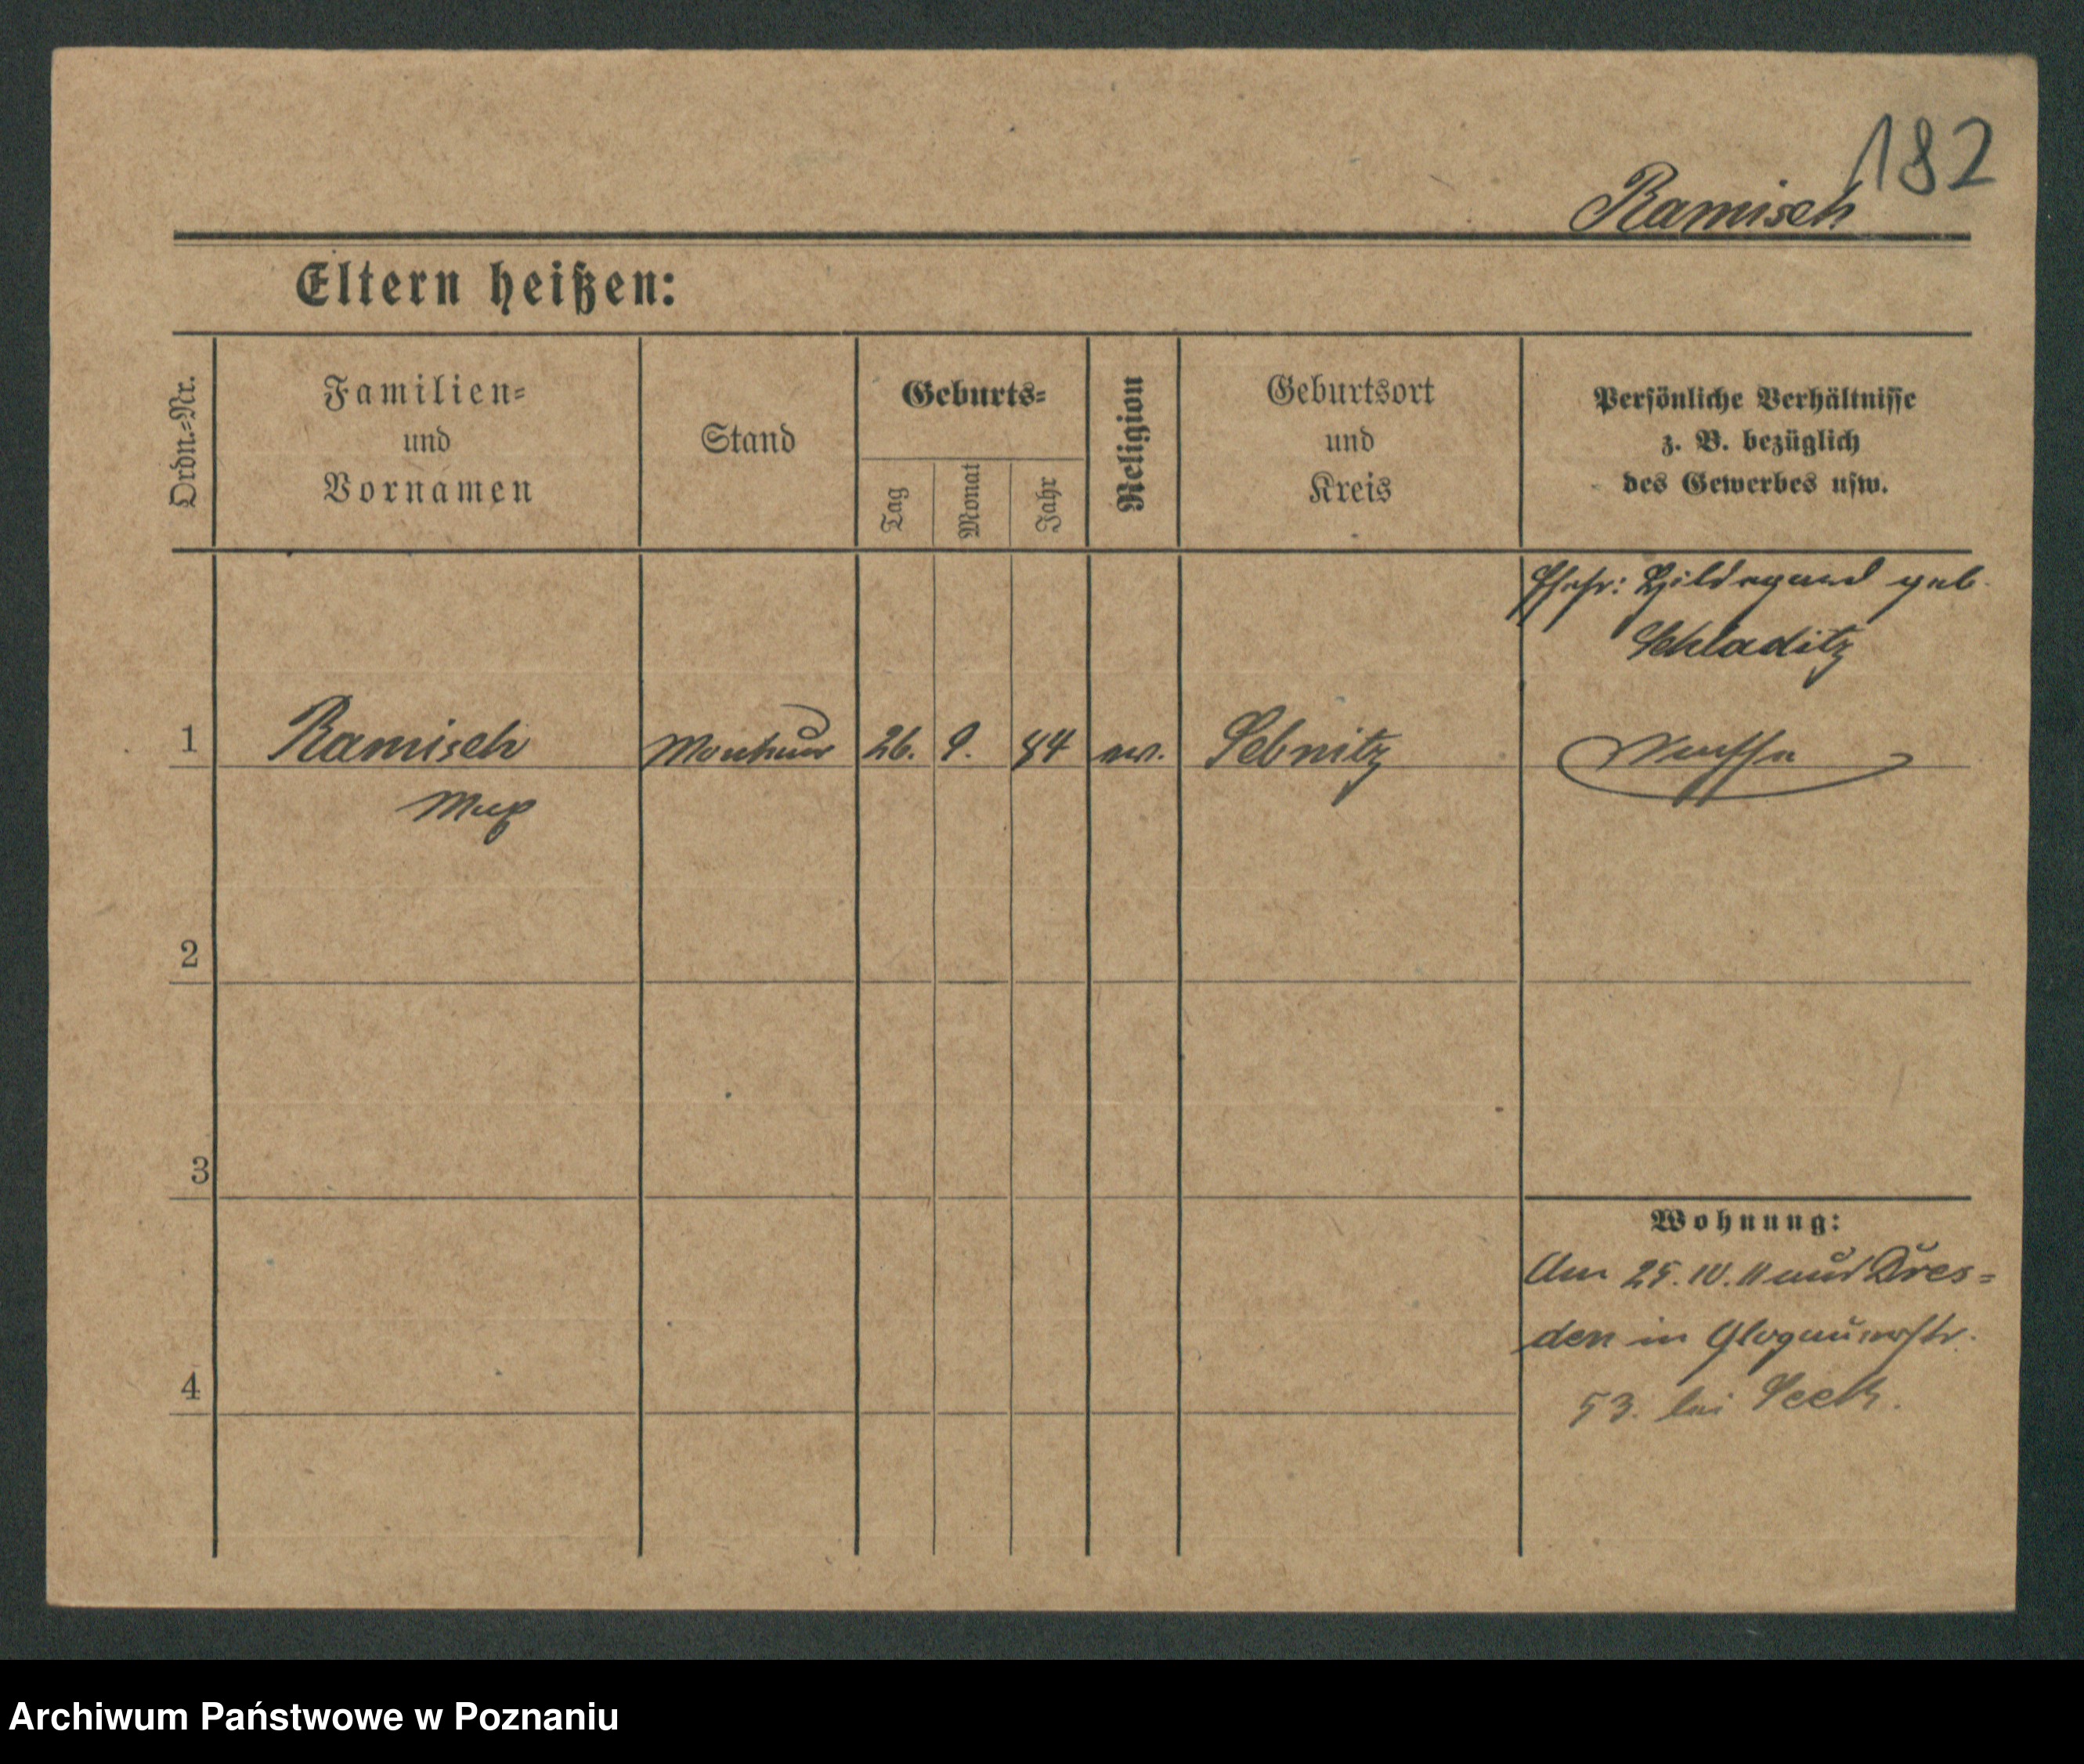 182
Ramisch
Eltern heißen:
Ordn.-Nr.
Familien-
und
Vornamen
Stand
Geburts-
Tag
Monat
Jahr
Religion
Geburtsort
und
Kreis
Persönliche Verhältnisse
z. B. bezüglich
des Gewerbes usw.
Ehefr: Hildegard geb.
Schladitz
1
Ramisch
Monteur
26.
9.
84
ev.
Sebnitz
Max
2
3
4
Wohnung:
Am 25. 10. 11 aus Dres-
den in Glogauerstr.
53. bei
Archiwum Państwowe w Poznaniu